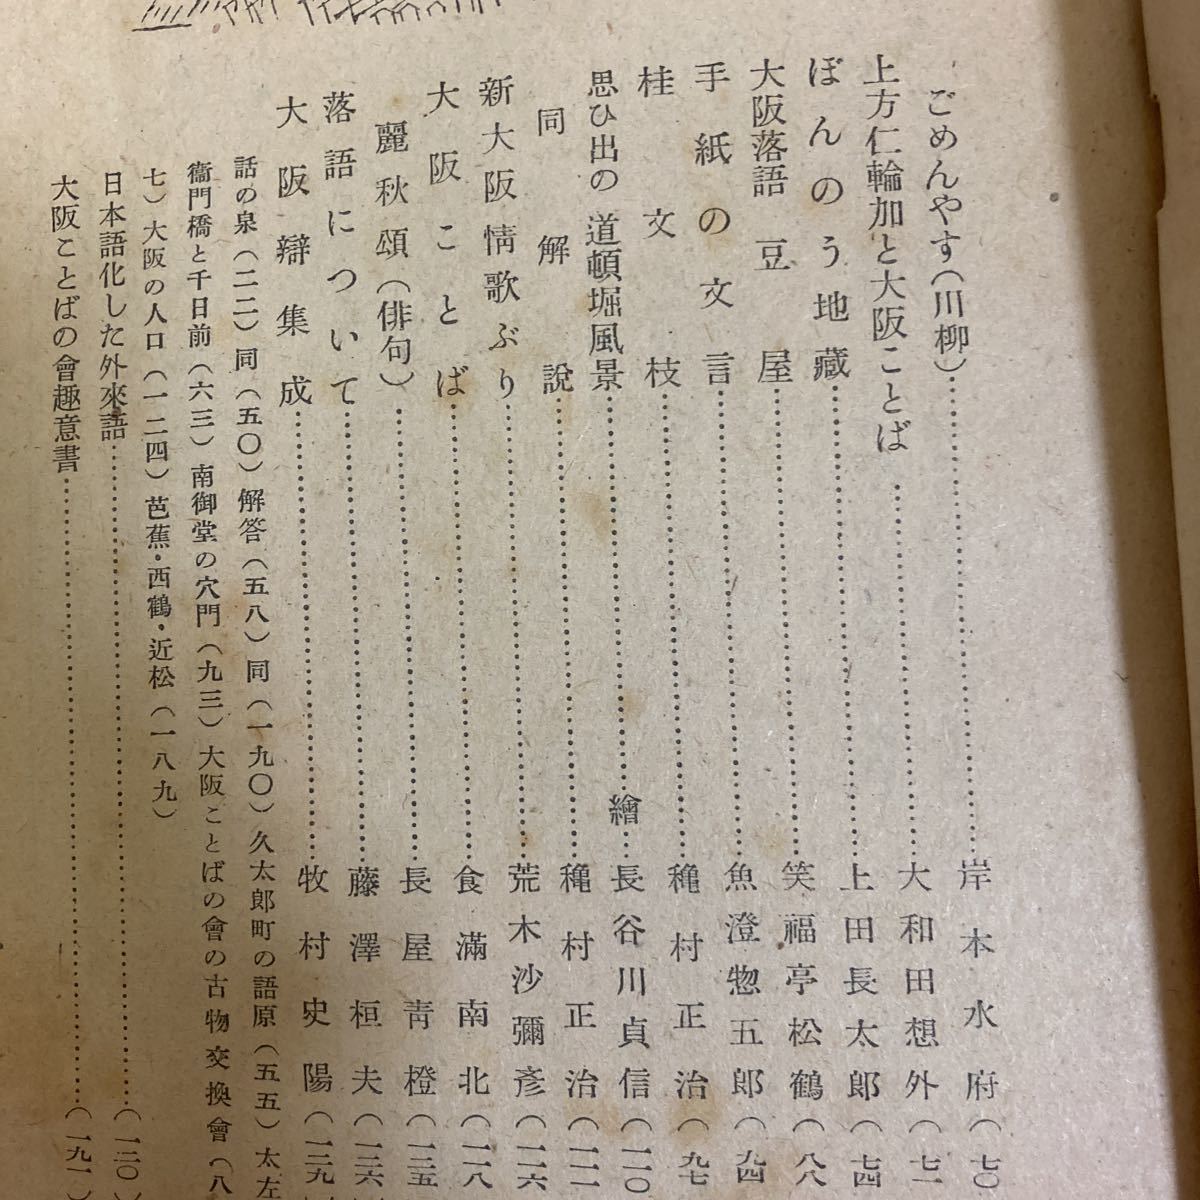 ごめんやす(川柳)…………岸本水府(七〇
上方仁輪加と大阪ことば…………大和田想外(七二
ぼんのう地藏…………上田長太郎(七四
大阪落語 豆屋…………笑福亭松鶴(八八
手紙の文言…………魚澄惣五郎(九四
桂文枝…………穐村正治(九七
思ひ出の道頓堀風景…………繪…長谷川貞信(一一〇
同解說…………穐村正治(一一一
新大阪情歌ぶり…………荒木沙彌彥(一一六
大阪ことば…………食滿南北(一一八
麗秋頌(俳句)…………長屋靑橙(一三五
落語について…………藤澤桓夫(一三六
大阪辯集成…………牧村史陽(一三九
話の泉(二二)同(五〇)解答(五八)同(一九〇)久太郎町の語原(五五)太左
衞門橋と千日前(六三)南御堂の穴門(九三)大阪ことばの會の古物交換會(八
七)大阪の人口(一二四)芭蕉・西鶴・近松(一八九)
日本語化した外來語…………(一三〇)
大阪ことばの會趣意書…………(一九一)